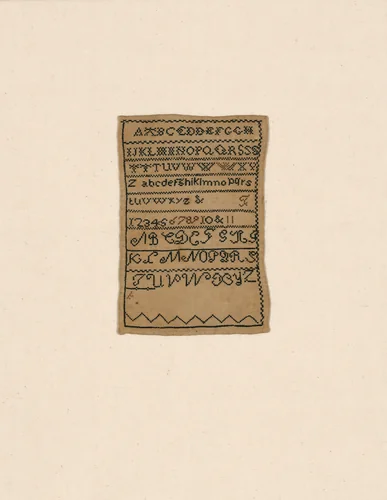 AABCDDEFGGH
IJKLMNOPQRSSS
TTTUVWWXY
Z abcdefghiklmnopqrs
tuvwxyz &
12345678910 & 11
ABCDEFGHI
KLMNOPQRS
TUVWXYZ